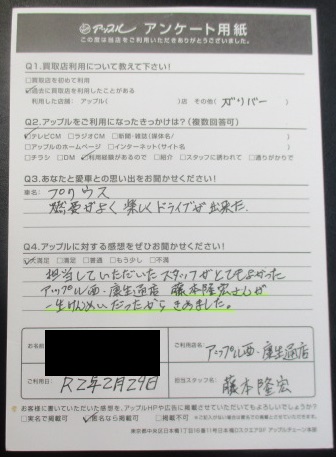 アップル アンケート用紙
この度は当店をご利用いただきありがとうございました。
Q1.買取店利用について教えて下さい!
□買取店を初めて利用
☑過去に買取店を利用したことがある
利用した店舗: アップル( )店 その他( ガリバー )
Q2.アップルをご利用になったきっかけは?(複数回答可)
☑テレビCM □ラジオCM □新聞・雑誌(媒体名/ )
□アップルのホームページ □インターネット(サイト名/ )
□チラシ □DM ☑利用経験があるので □紹介 □スタッフに誘われて □通りがかりで
Q3.あなたと愛車との思い出をお聞かせください!
車名: プリウス
燃費がよく楽しくドライブが出来た.
Q4.アップルに対する感想をぜひお聞かせください!
☑大満足 □満足 □普通 □もう少し □不満
担当していただいたスタッフがとてもよかった
アップル西・康生通店 藤本隆宏さんが
一生けんめいだったからきめました。
お名前
ご利用店名: アップル西・康生通店
ご利用日 R2年2月29日
担当スタッフ名: 藤本隆宏
お客様に書いていただいた感想を、アップルHPや広告に掲載させていただいてもよろしいでしょうか?
□実名で掲載可 ☑匿名なら掲載可 □掲載不可